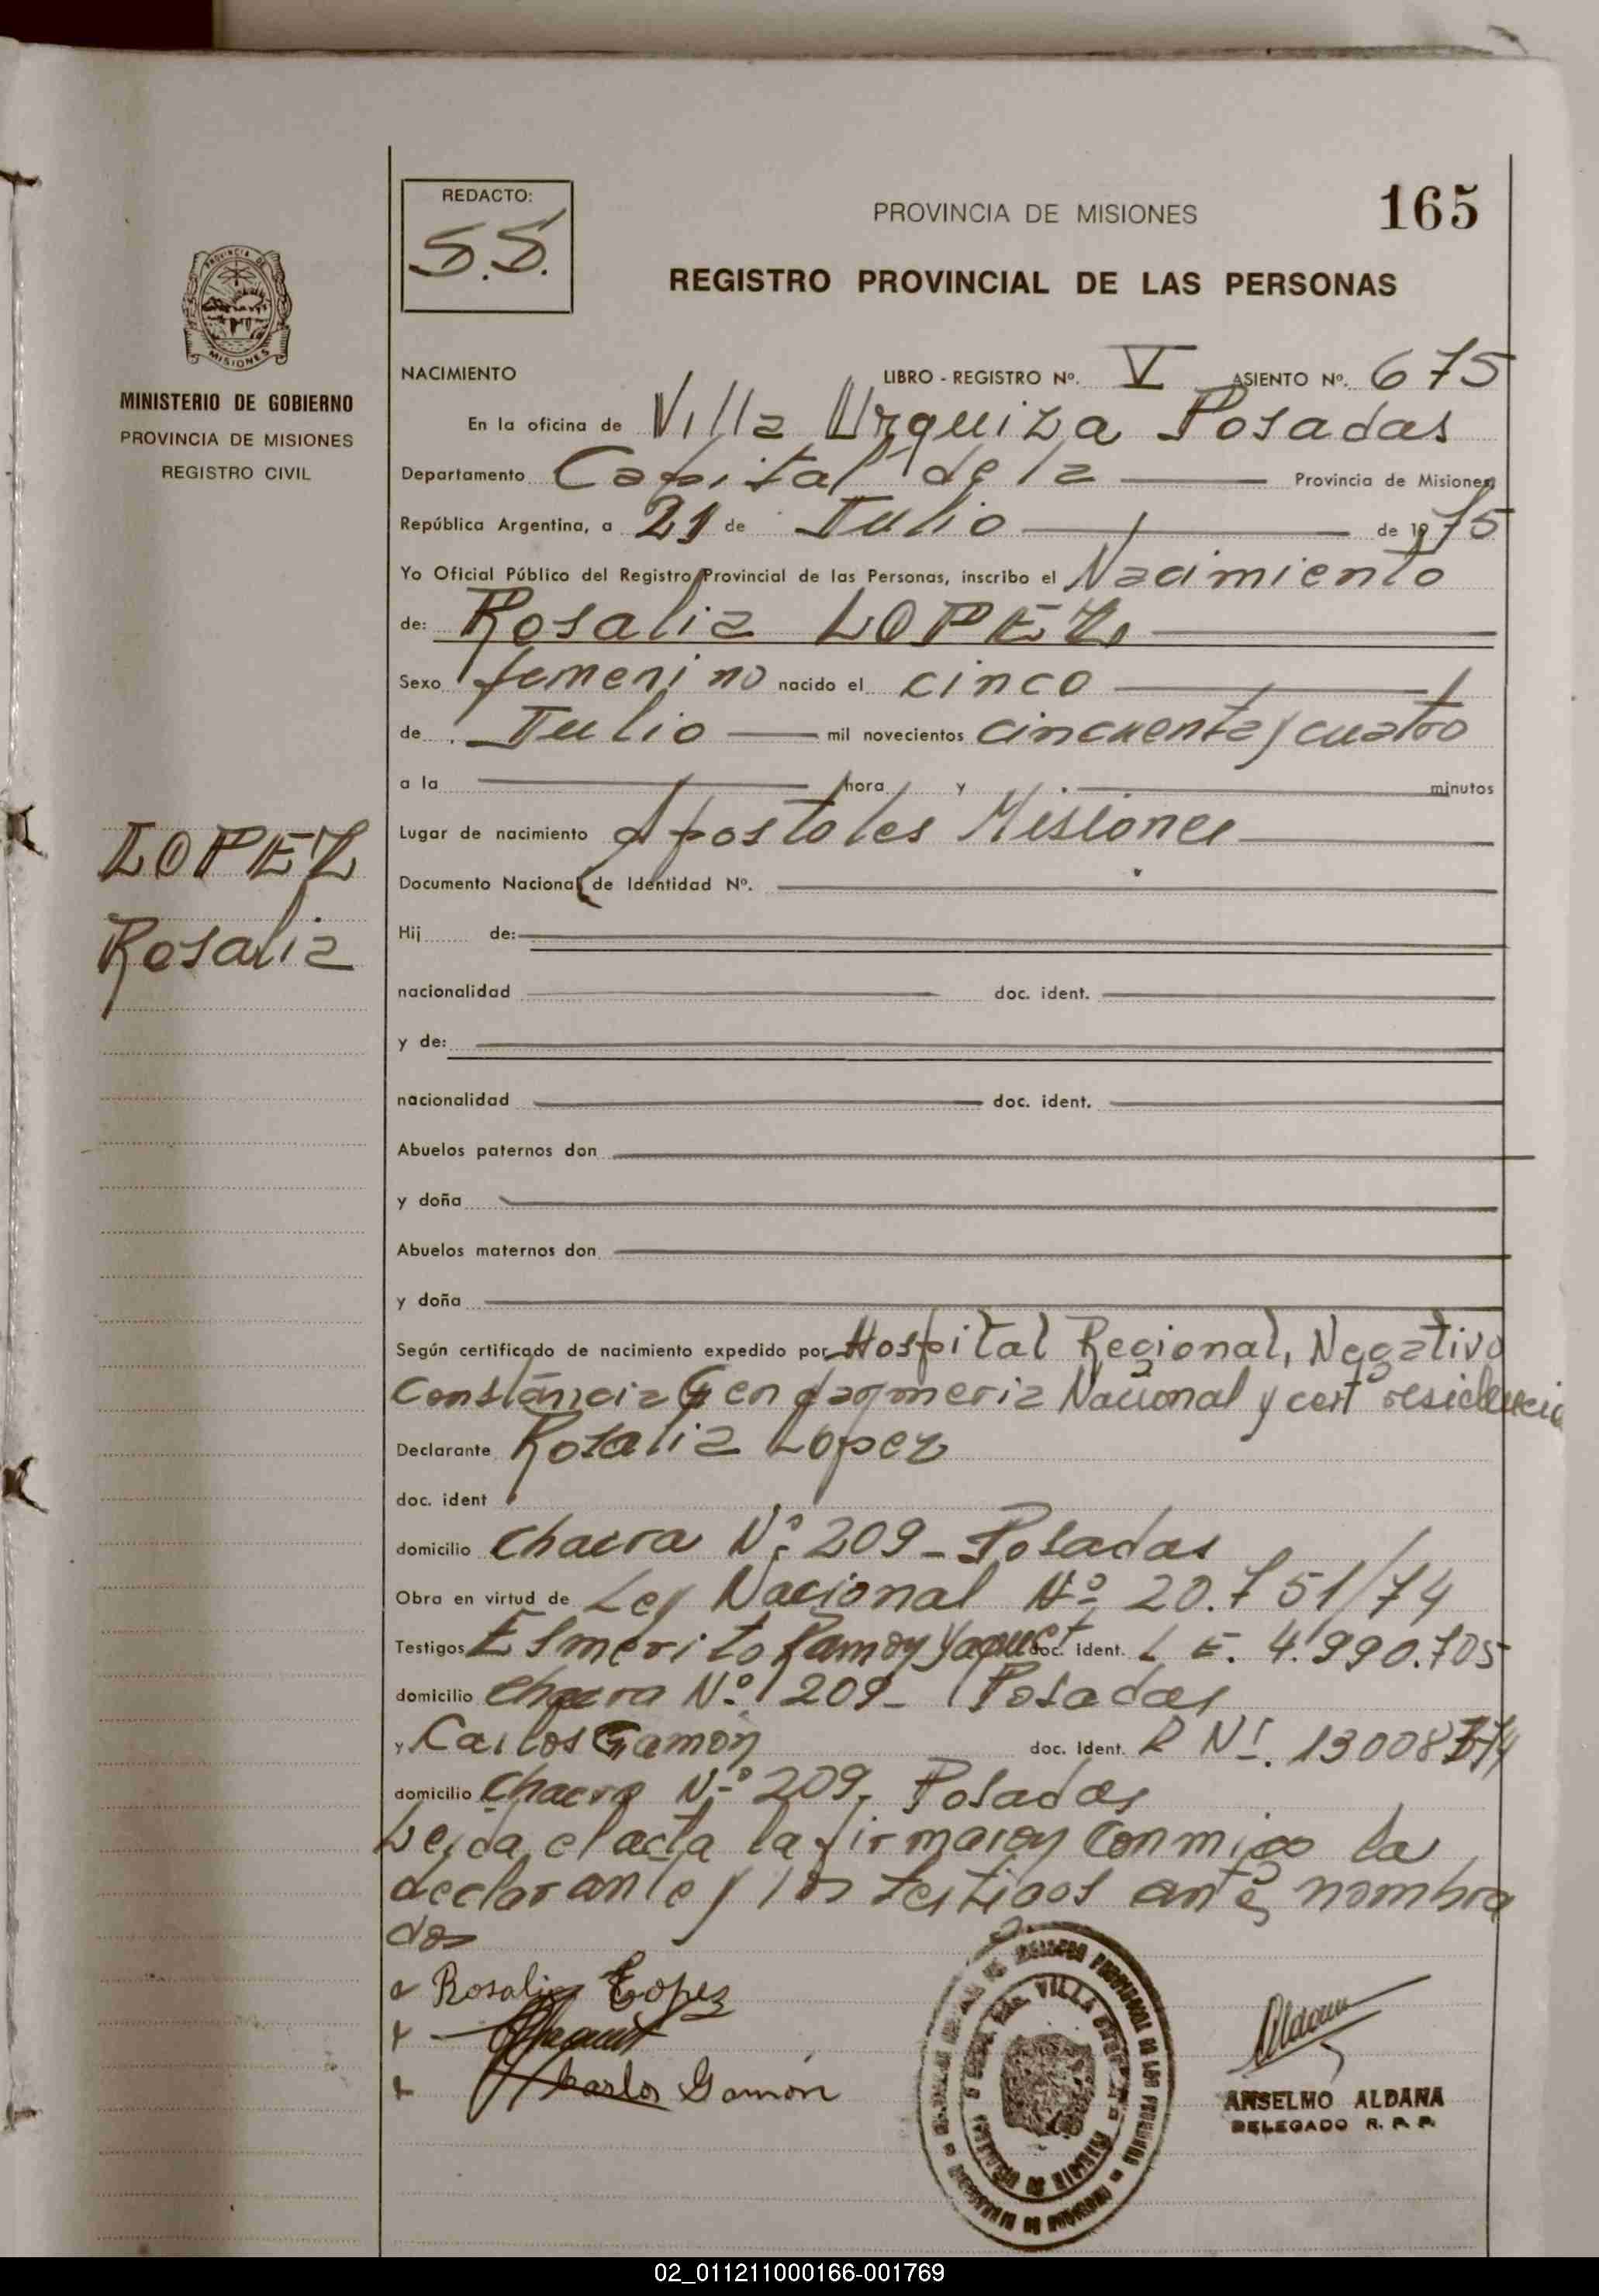 REDACTO:
S.S.
PROVINCIA DE MISIONES
165
REGISTRO PROVINCIAL DE LAS PERSONAS
PROVINCIA DE
MISIONES
MINISTERIO DE GOBIERNO
PROVINCIA DE MISIONES
REGISTRO CIVIL
NACIMIENTO LIBRO - REGISTRO Nº. V ASIENTO Nº. 675
En la oficina de Villa Urquiza Posadas
Departamento Capital de la Provincia de Misiones,
República Argentina, a 21 de Julio de 1975
Yo Oficial Público del Registro Provincial de las Personas, inscribo el Nacimiento
de: Rosalia LOPEZ
Sexo femenino nacido el cinco
de Julio mil novecientos cincuenta y cuatro
a la hora y minutos
Lugar de nacimiento Apostoles Misiones
LOPEZ
Rosalia
Documento Nacional de Identidad Nº.
Hij de:
nacionalidad doc. ident.
y de:
nacionalidad doc. ident.
Abuelos paternos don
y doña
Abuelos maternos don
y doña
Según certificado de nacimiento expedido por Hospital Regional, Negativo
Constáncia Gendarmeria Nacional y cert residencia
Declarante Rosalia Lopez
doc. ident
domicilio Chacra Nº 209 - Posadas
Obra en virtud de Ley Nacional Nº 20.751/74
Testigos Esmerito Ramon Yaquet doc. ident. L E. 4.990.705
domicilio Chacra Nº 209 - Posadas
y Carlos Gamón doc. Ident. R NI.
domicilio Chacra Nº 209. Posadas
Leida el acta la firmaron conmigo la
declarante y los testigos antes nombra
dos
Rosalia Lopez
Carlos Gamón
VILLA
ANSELMO ALDANA
DELEGADO R. P. P.
02_011211000166-001769